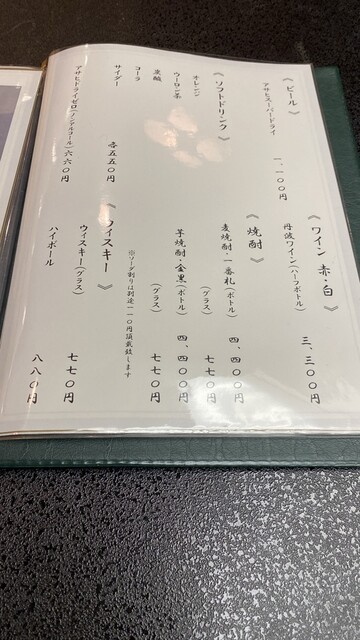 《ビール》
アサヒスーパードライ
一、一〇〇円
《ソフトドリンク》
オレンジ
ウーロン茶
黒酢
コーラ
サイダー
各五五〇円
アサヒドライゼロ(ノンアルコール)六六〇円
《ワイン 赤・白》
丹波ワイン(ハーフボトル)
三、三〇〇円
《焼酎》
麦焼酎・一番札(ボトル)
四、四〇〇円
(グラス)
七七〇円
芋焼酎・金黒(ボトル)
四、四〇〇円
(グラス)
七七〇円
※ソーダ割りは別途一一〇円頂戴致します
《ウィスキー》
ウィスキー(グラス)
七七〇円
ハイボール
八八〇円